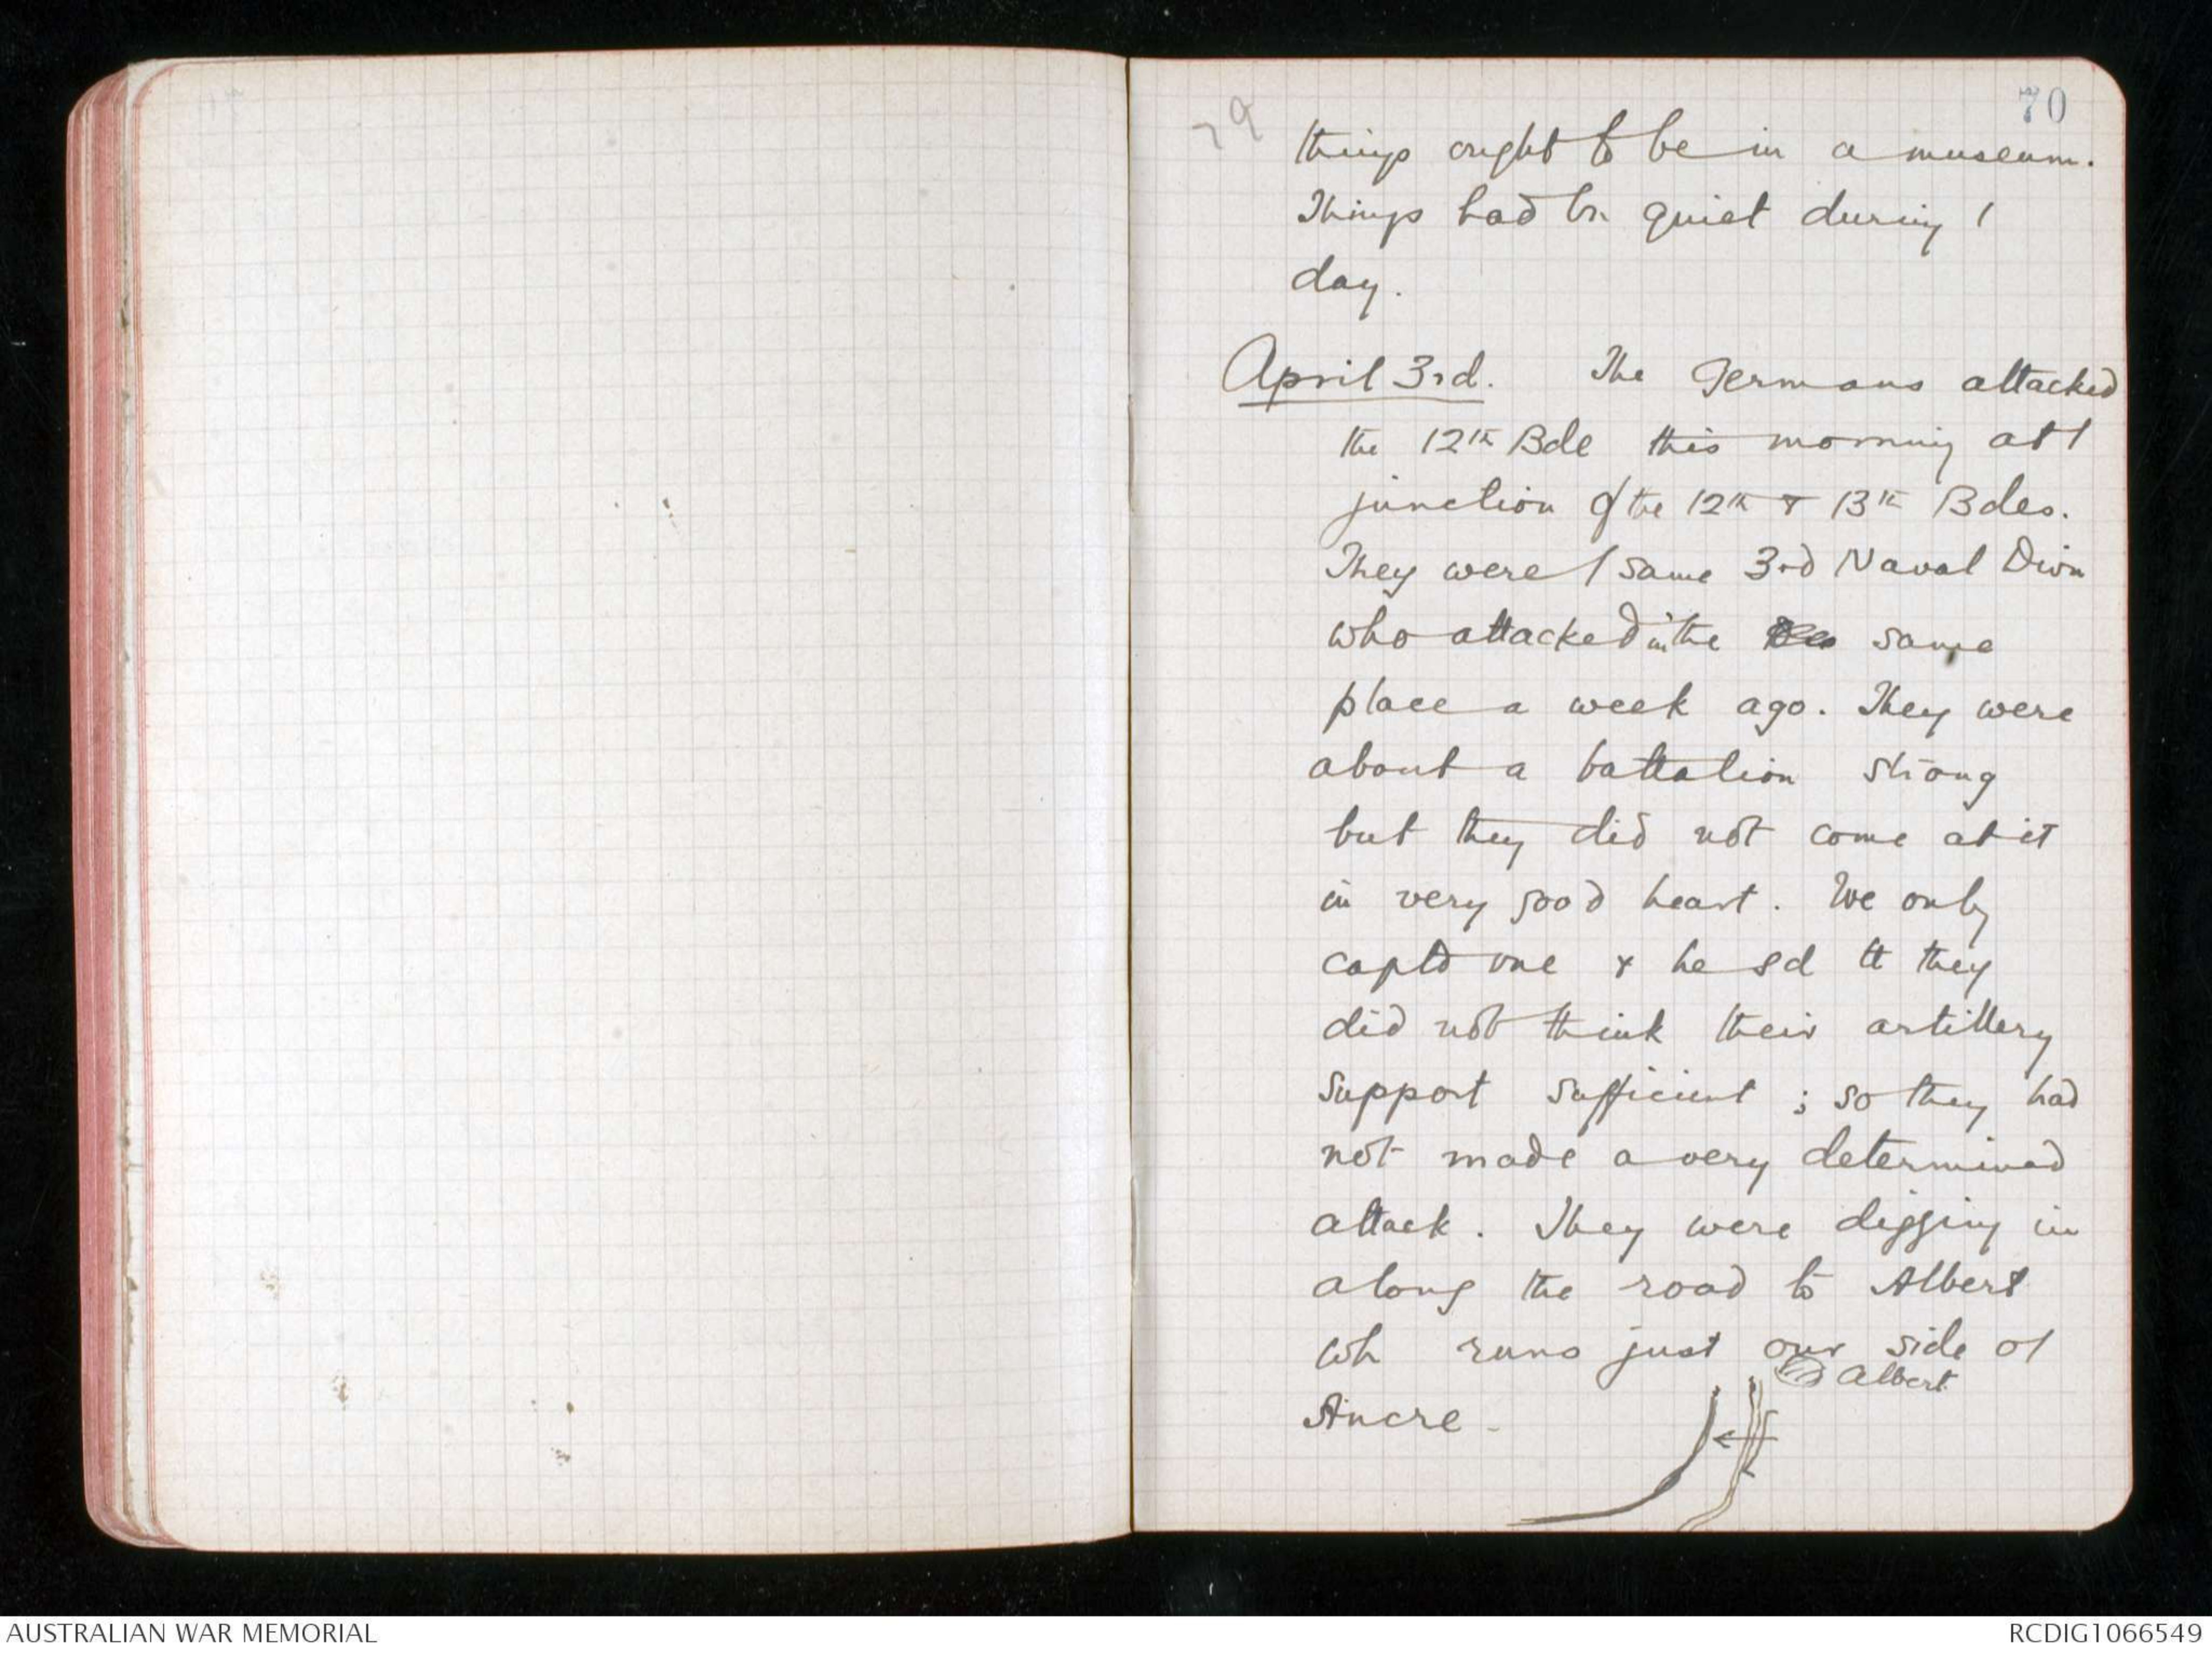 70
79
things ought to be in a museum.
Things had bn quiet during /
day.
April 3rd. The Germans attacked
the 12th Bde this morning at /
junction of the 12th & 13th Bdes.
They were / same 3rd Naval Divn
who attacked in the same
place a week ago. They were
about a battalion strong
but they did not come at it
in very good heart. We only
captd one & he sd tt they
did not think their artillery
support sufficient ; so they had
not made a very determined
attack. They were digging in
along the road to Albert
wh runs just our side of
Albert
Ancre.
AUSTRALIAN WAR MEMORIAL
RCDIG1066549